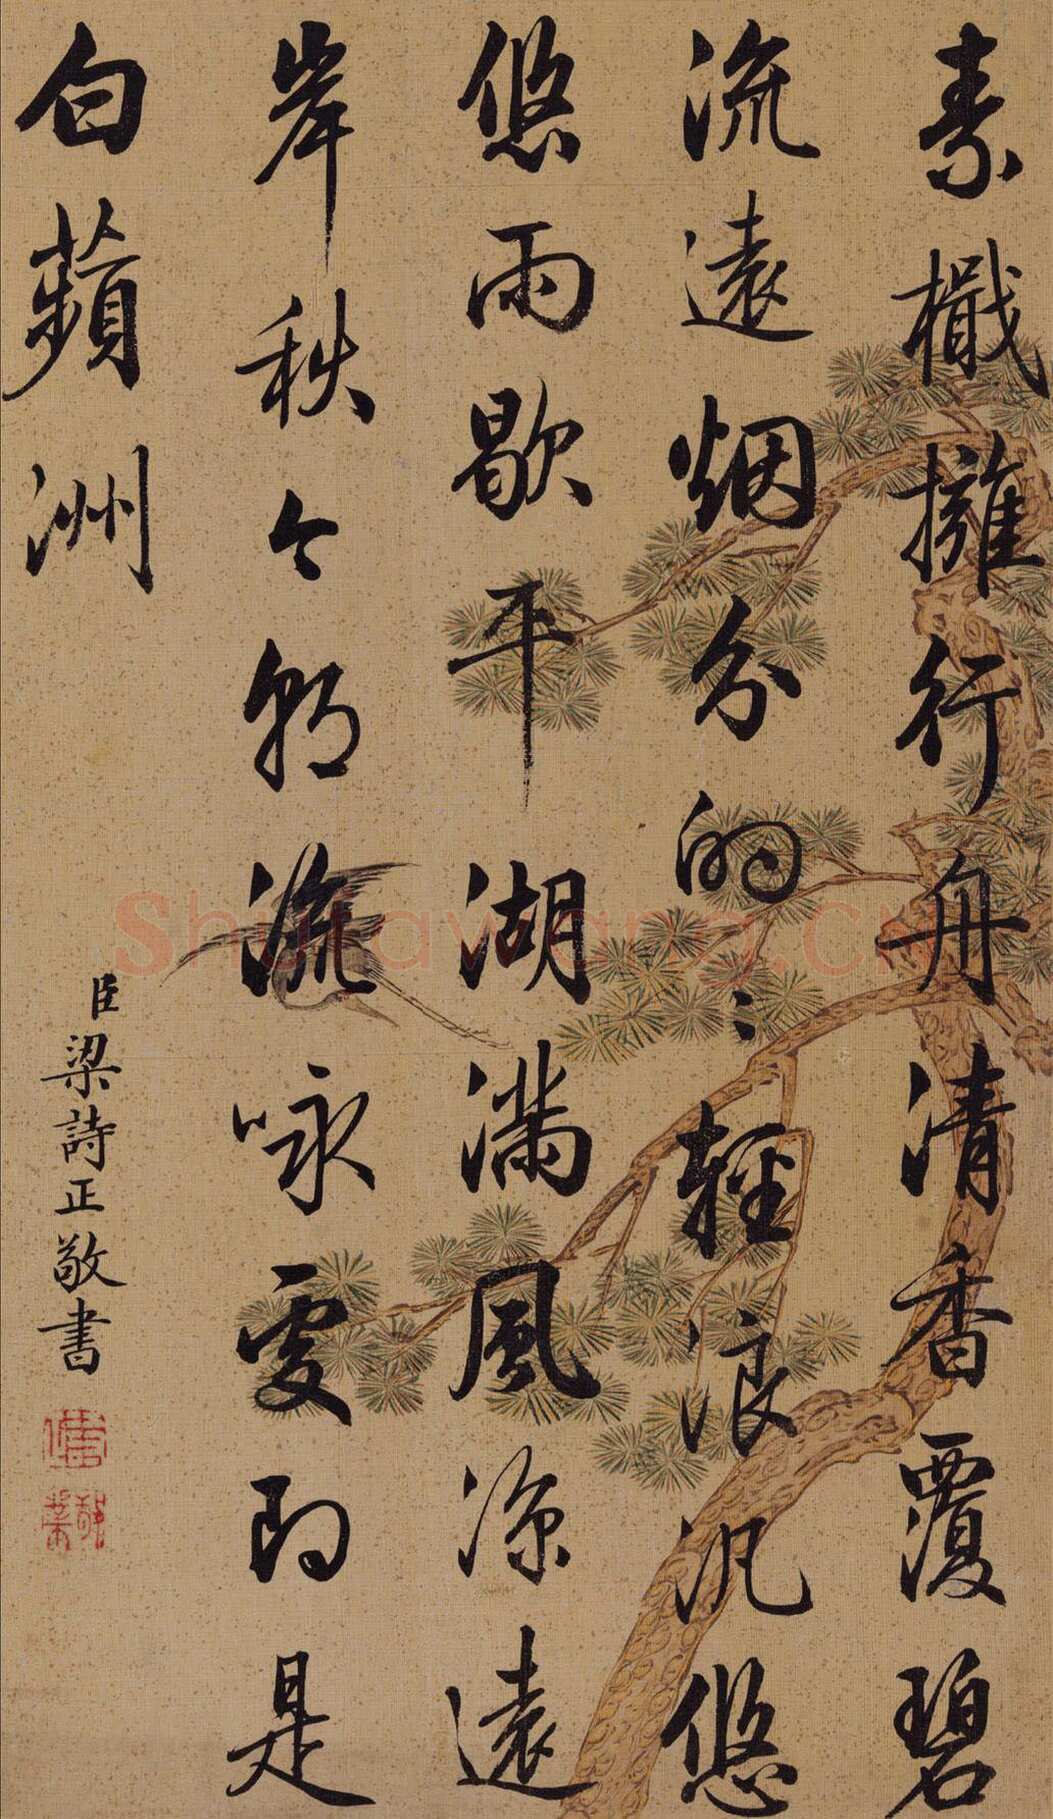 素檝擁行舟清香覆碧
流遠烟分的〻輕浪汎悠
悠雨歇平湖滿風涼遠
岸秋今朝流咏處即是
白蘋洲
臣梁詩正敬書
Shufawang.CN